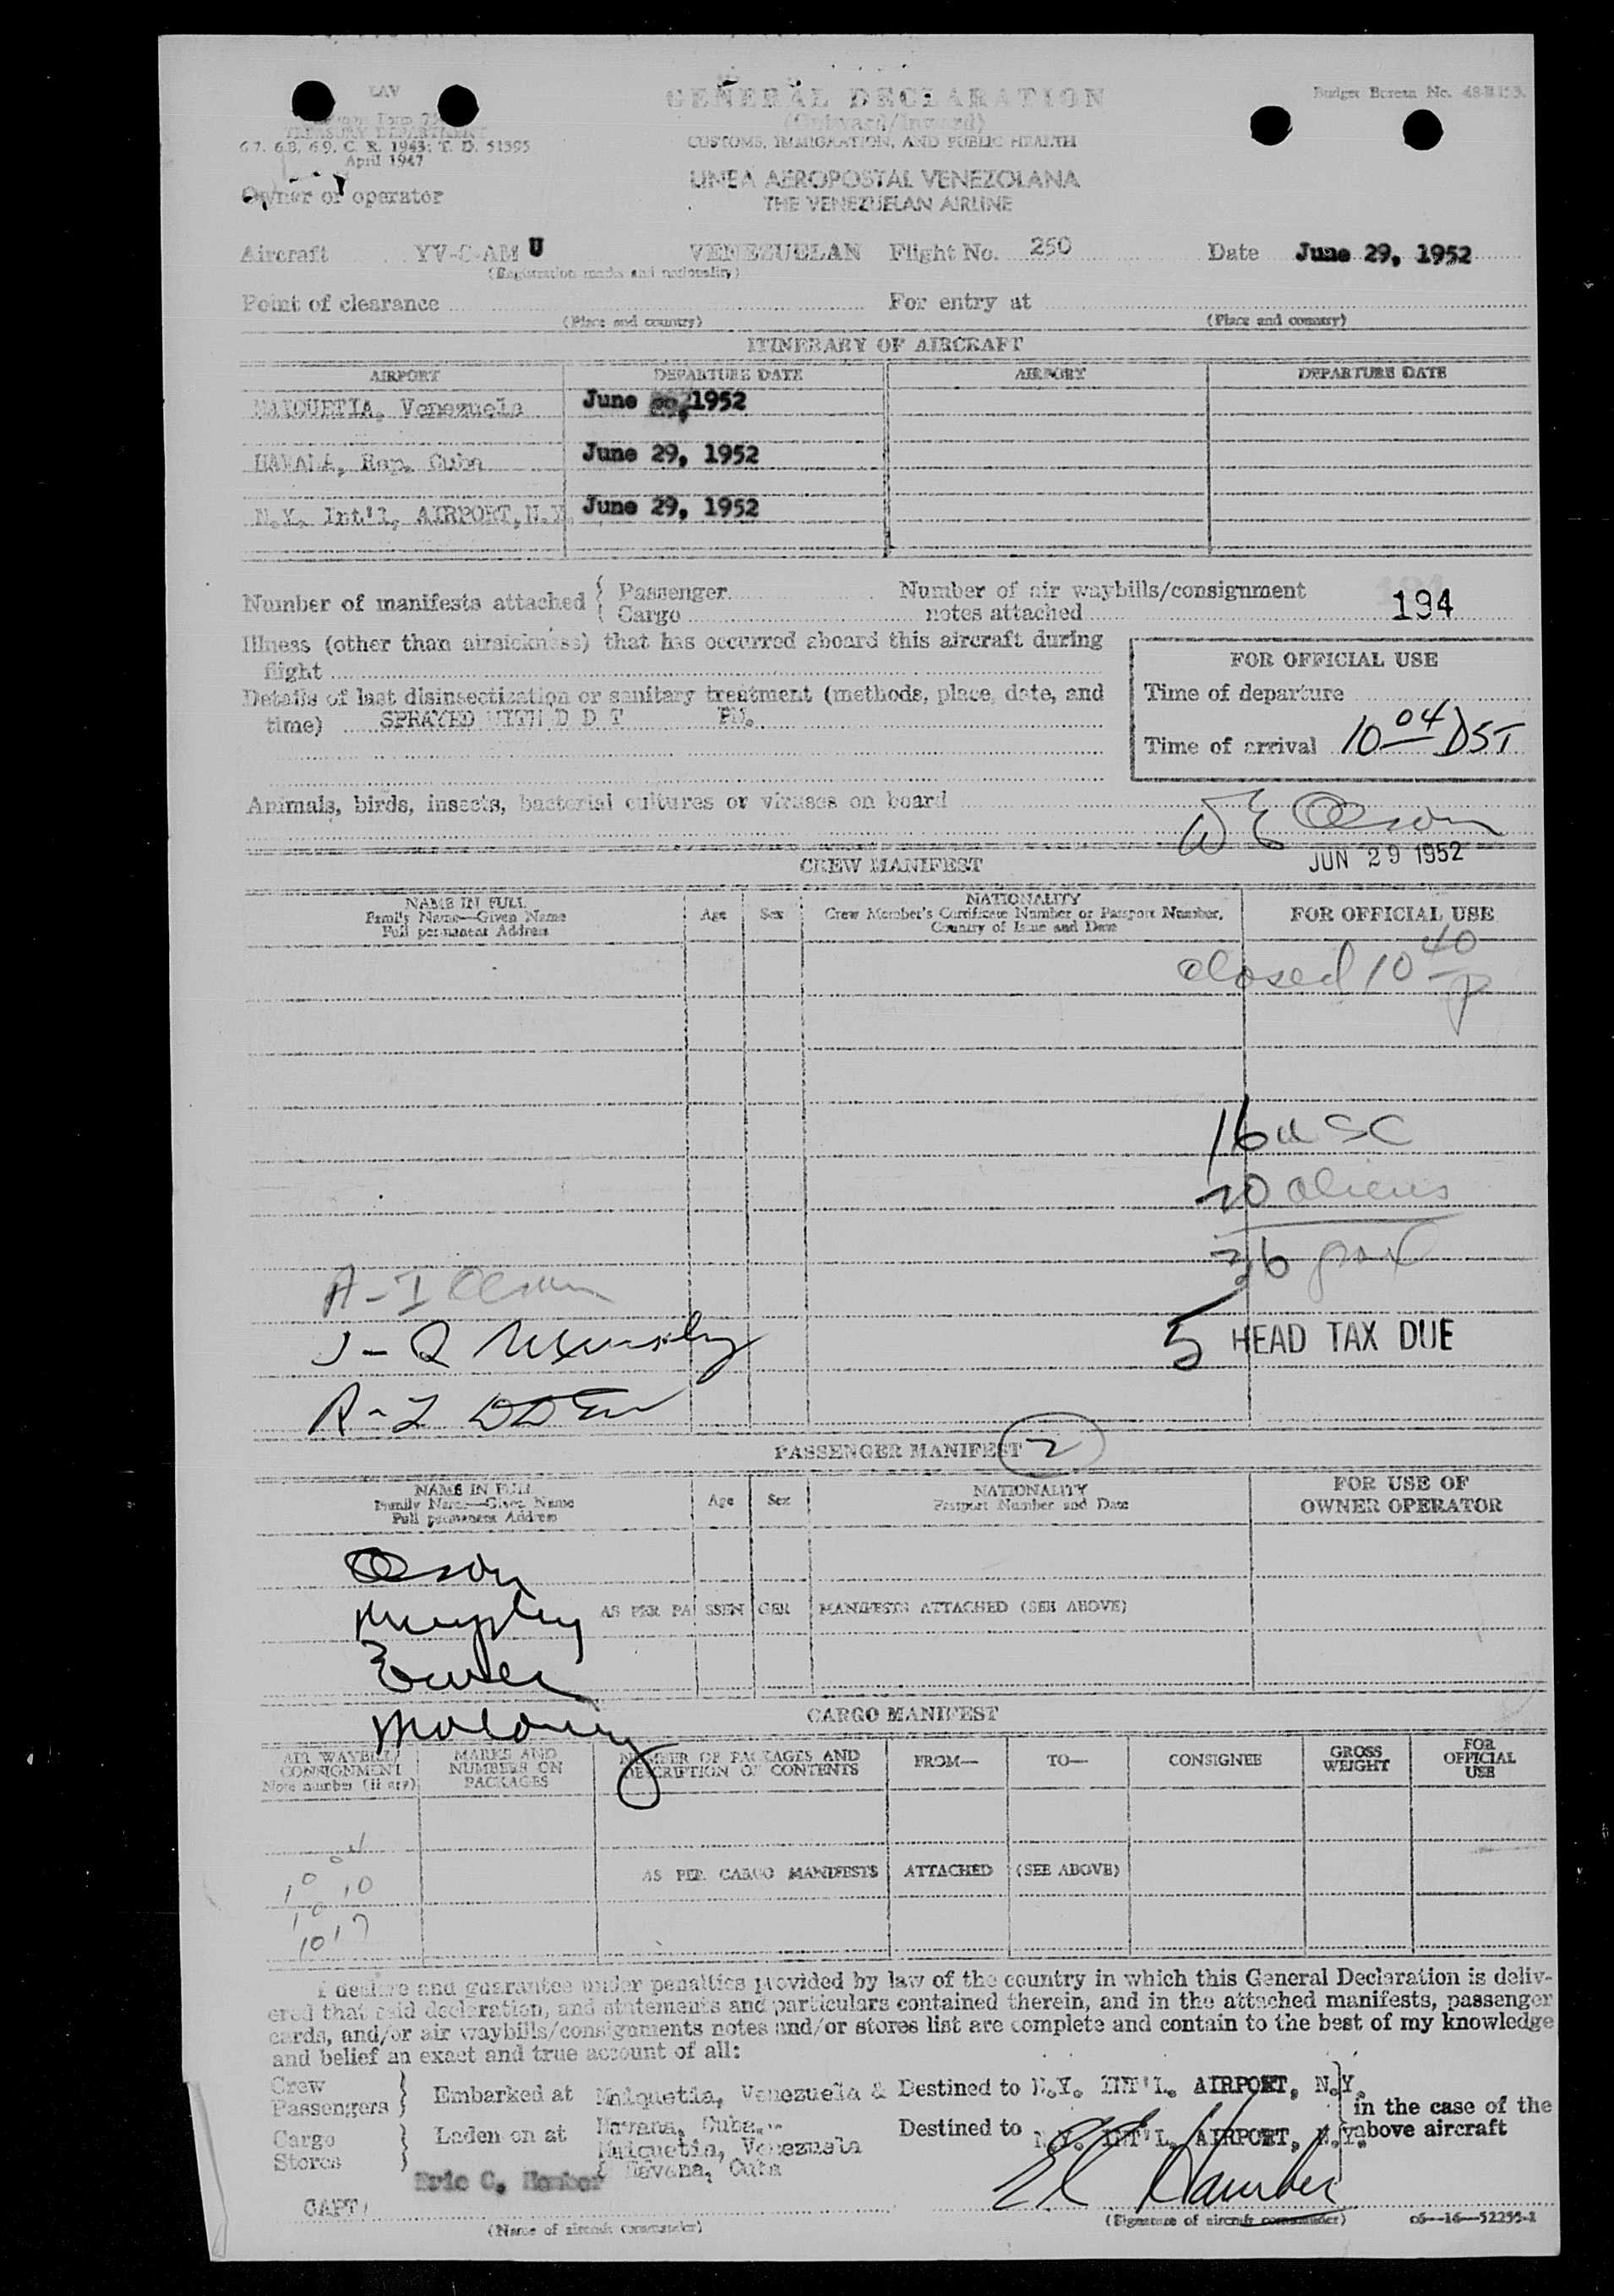 LAV
GENERAL DECLARATION
Budget Bureau No.
(Outward/Inward)
TREASURY DEPARTMENT
6.7, 6.8, 6.9, C. R. 1943; T. D. 51595
April 1947
CUSTOMS, IMMIGRATION, AND PUBLIC HEALTH
LINEA AEROPOSTAL VENEZOLANA
THE VENEZUELAN AIRLINE
Owner or operator
Aircraft YV-C-AM U VENEZUELAN Flight No. 250 Date June 29, 1952
(Registration marks and nationality)
Point of clearance For entry at
(Place and country) (Place and country)
ITINERARY OF AIRCRAFT
AIRPORT DEPARTURE DATE AIRPORT DEPARTURE DATE
MAIQUETIA, Venezuela June 1952
HAVANA, Rep. Cuba June 29, 1952
N.Y. Int'l, AIRPORT, N.Y. June 29, 1952
Number of manifests attached { Passenger Number of air waybills/consignment
Cargo notes attached 194
Illness (other than airsickness) that has occurred aboard this aircraft during
flight
FOR OFFICIAL USE
Details of last disinsectization or sanitary treatment (methods, place, date, and
time) SPRAYED WITH D D T PM.
Time of departure
Time of arrival 10 04 DST
Animals, birds, insects, bacterial cultures or viruses on board
W E Olson
JUN 29 1952
CREW MANIFEST
NAME IN FULL
Family Name—Given Name
Full permanent Address
Age Sex
NATIONALITY
Crew Member's Certificate Number or Passport Number,
Country of Issue and Date
FOR OFFICIAL USE
closed 10 40 p
16 USC
20 aliens
36
A - I Olson
J - Q
R - L
5 HEAD TAX DUE
PASSENGER MANIFEST 2
NAME IN FULL
Family Name—Given Name
Full permanent Address
Age Sex
NATIONALITY
Passport Number and Date
FOR USE OF
OWNER OPERATOR
Olson
Murphy
AS PER PASSENGER MANIFESTS ATTACHED (SEE ABOVE)
Moloney
CARGO MANIFEST
AIR WAYBILL/
CONSIGNMENT
Note number (if any)
MARKS AND
NUMBERS ON
PACKAGES
NUMBER OF PACKAGES AND
DESCRIPTION OF CONTENTS
FROM— TO— CONSIGNEE
GROSS
WEIGHT
FOR
OFFICIAL
USE
10 04
10 10
10 17
AS PER CARGO MANIFESTS ATTACHED (SEE ABOVE)
I declare and guarantee under penalties provided by law of the country in which this General Declaration is deliv-
ered that said declaration, and statements and particulars contained therein, and in the attached manifests, passenger
cards, and/or air waybills/consignments notes and/or stores list are complete and contain to the best of my knowledge
and belief an exact and true account of all:
Crew
Passengers } Embarked at Maiquetia, Venezuela & Havana, Cuba. Destined to N.Y. INT'L. AIRPORT, N.Y.
Cargo
Stores } Laden on at Maiquetia, Venezuela & Havana, Cuba Destined to N.Y. INT'L. AIRPORT, N.Y.
in the case of the
above aircraft
Eric C. Hamber
CAPT/
E C Hamber
(Name of aircraft commander) (Signature of aircraft commander) c6—16—52255-1